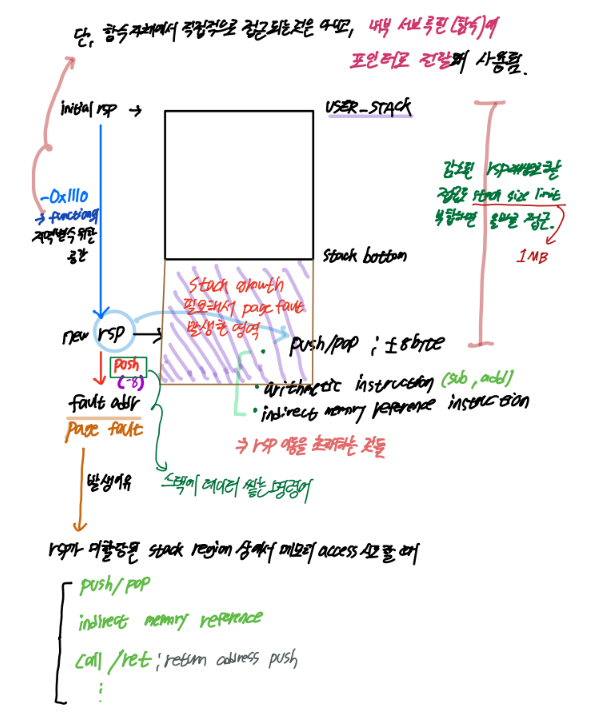 단, 함수자체에서 직접적으로 접근되는것은 아니고, 내부 서브루틴(함수)에
포인터로 전달돼 사용됨.
initial rsp →
USER_STACK
-0x1110
→ function의
지역변수 위한
공간
감소된 rsp
접근은 stack size limit
부합하면 올바른 접근.
1MB
stack bottom
Stack growth
필요해서 page fault
발생한 영역
new rsp →
push/pop ; ±8byte
push
(-8)
• arithmetic instruction (sub, add)
• indirect memory reference instruction
fault addr
page fault
⇒ rsp 이동을 초래하는 것들
발생이유
스택에 데이터 쌓는 명령어
rsp가 미할당된 stack region 상에서 메모리 access 시도할 때
push/pop
indirect memory reference
call /ret ; return address push
⋮